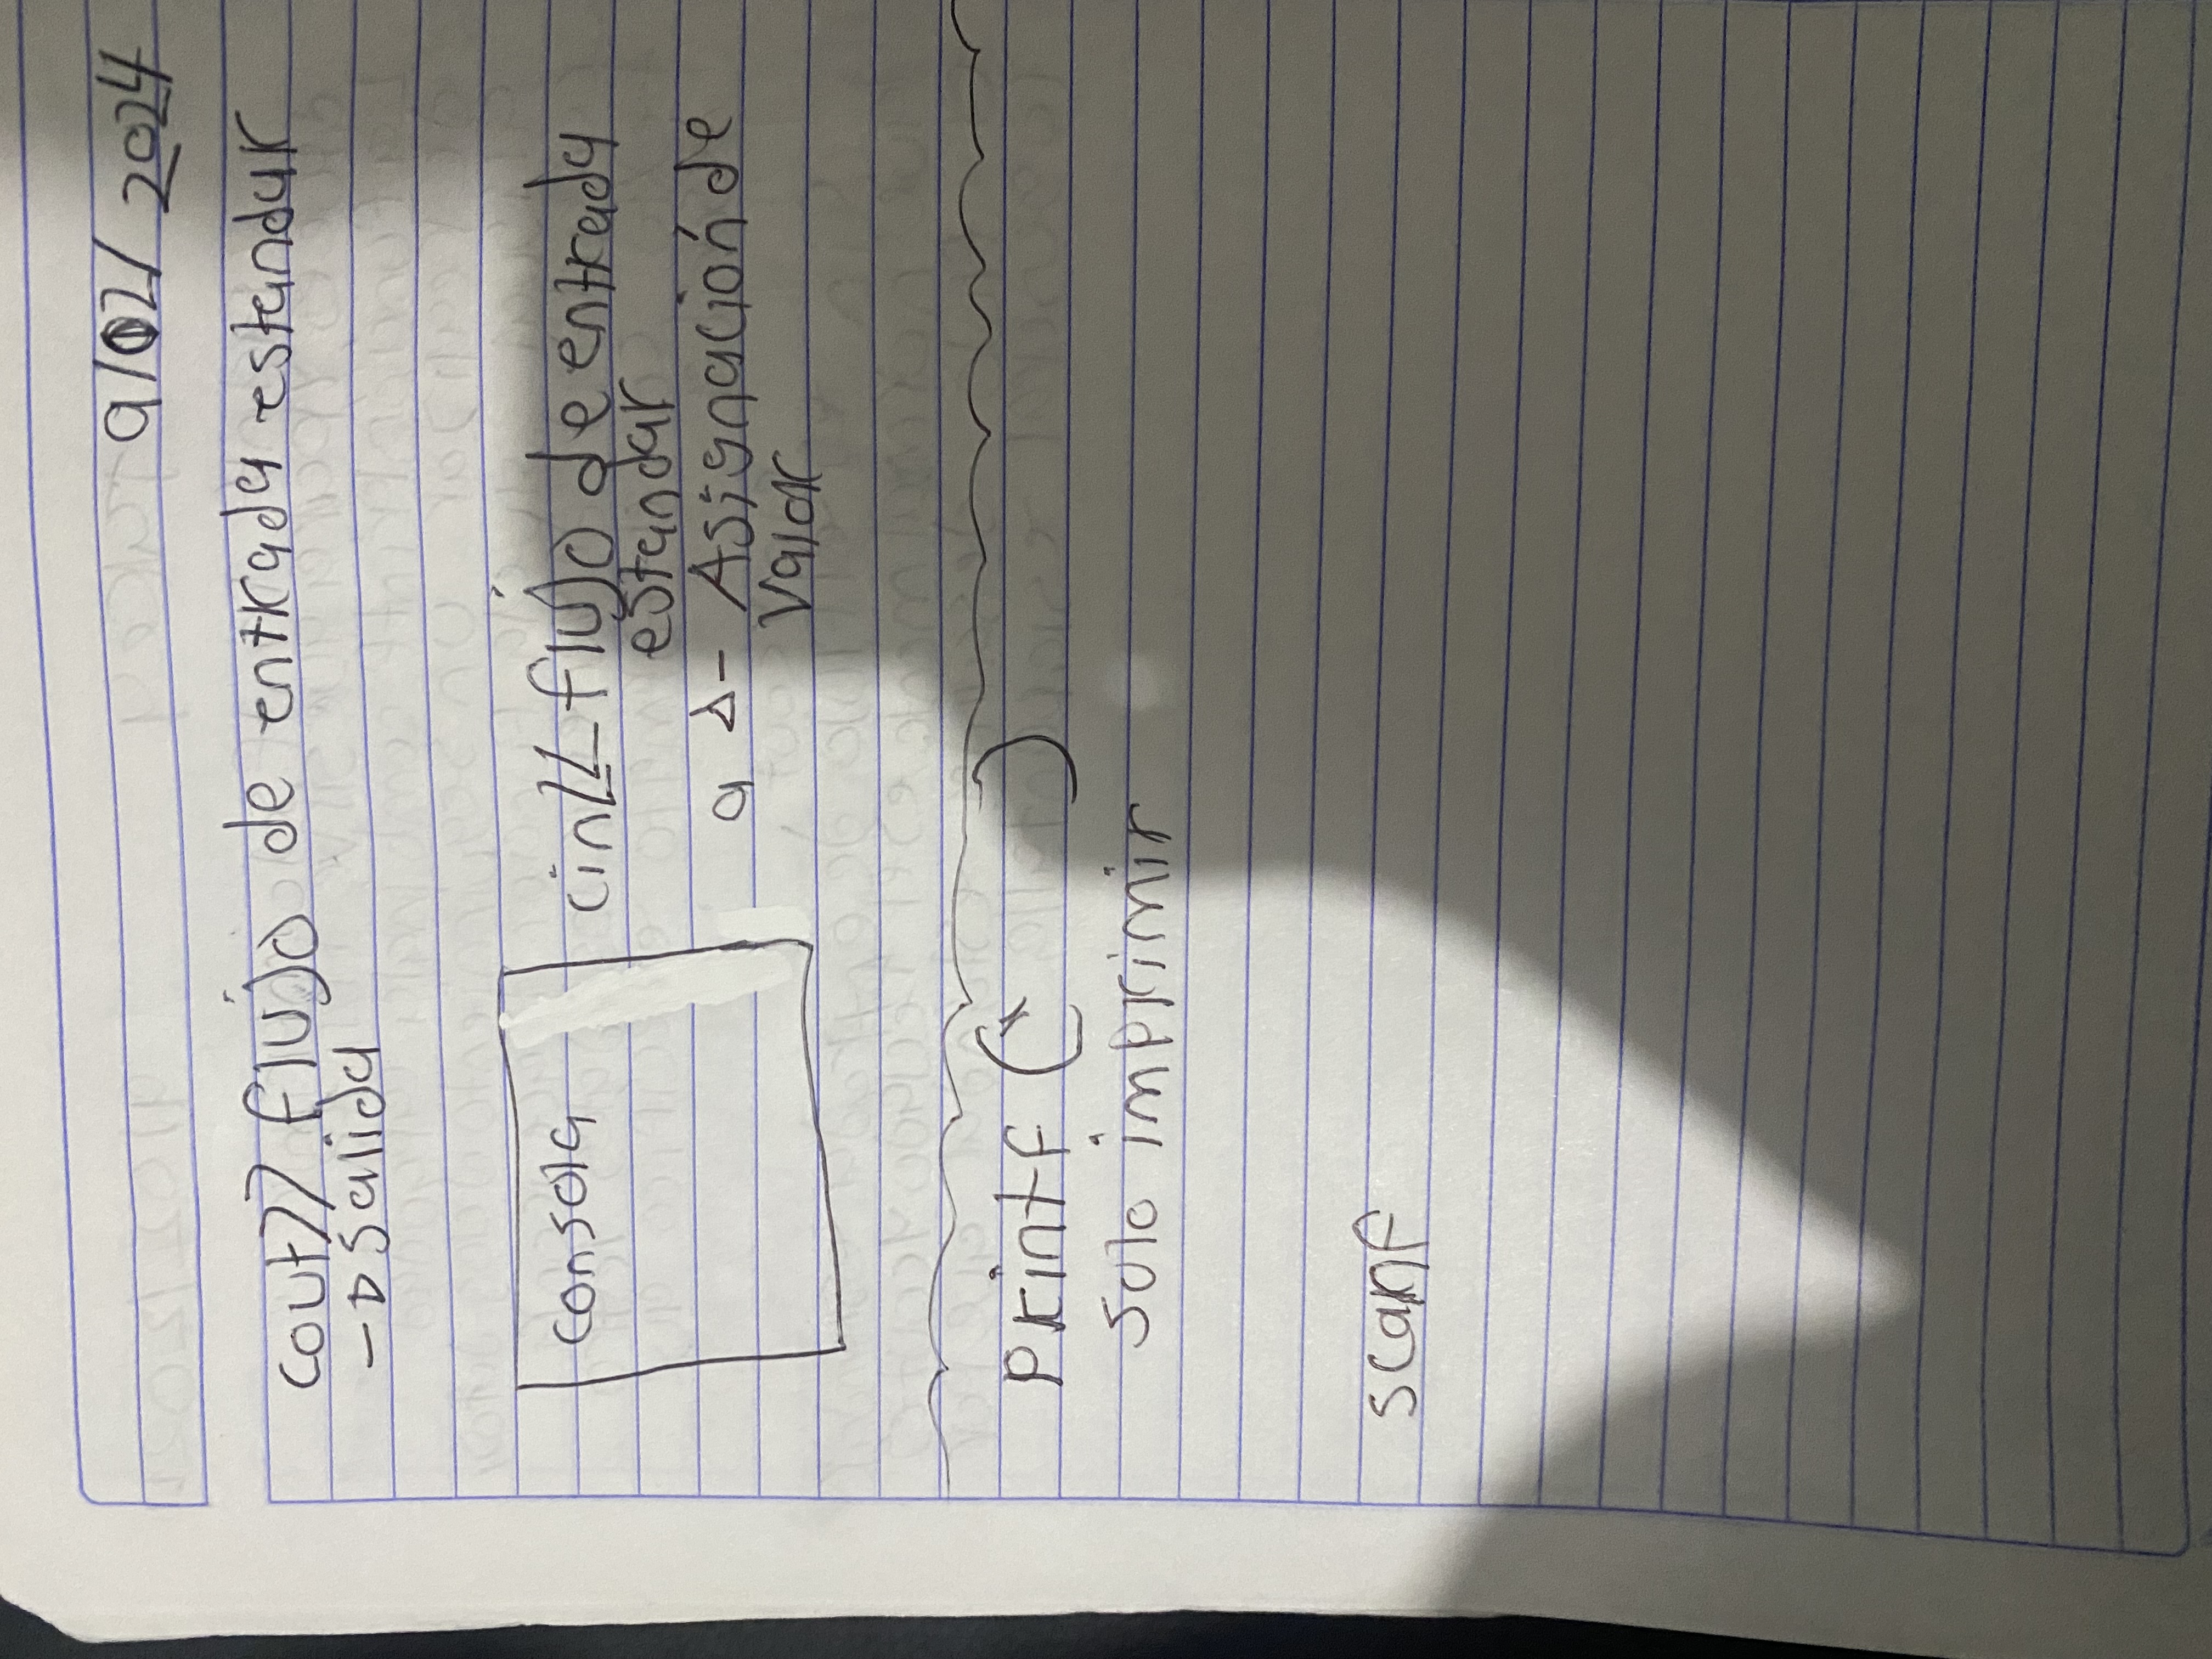 9/02/2024
cout>> flujo de entrada estandar
→ Salida
Consola
cin<< flujo de entrada
estandar
a ← Asignación de
valor
printf (" )
Solo imprimir
scanf